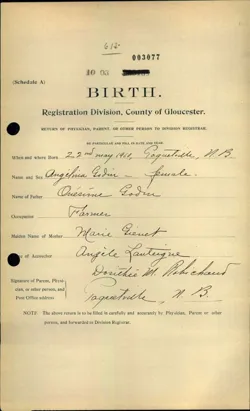 612
003077
(Schedule A)
BIRTH.
Registration Division, County of Gloucester.
RETURN OF PHYSICIAN, PARENT, OR OTHER PERSON TO DIVISION REGISTRAR.
BE PARTICULAR AND FILL IN DATE AND YEAR
When and where Born 22nd May Paquetville, N B.
Name and Sex Angelina Godin - female.
Name of Father Onésime Godin
Occupation Farmer
Maiden Name of Mother Marie
of Accoucheur Angèle Lanteigne
Signature of Parent, Physi- Dorithée M. Robichaud
cian, or other person, and
Post Office address Paquetville, N. B.
NOTE The above return is to be filled in carefully and accurately by Physician, Parent or other
person, and forwarded to Division Registrar.